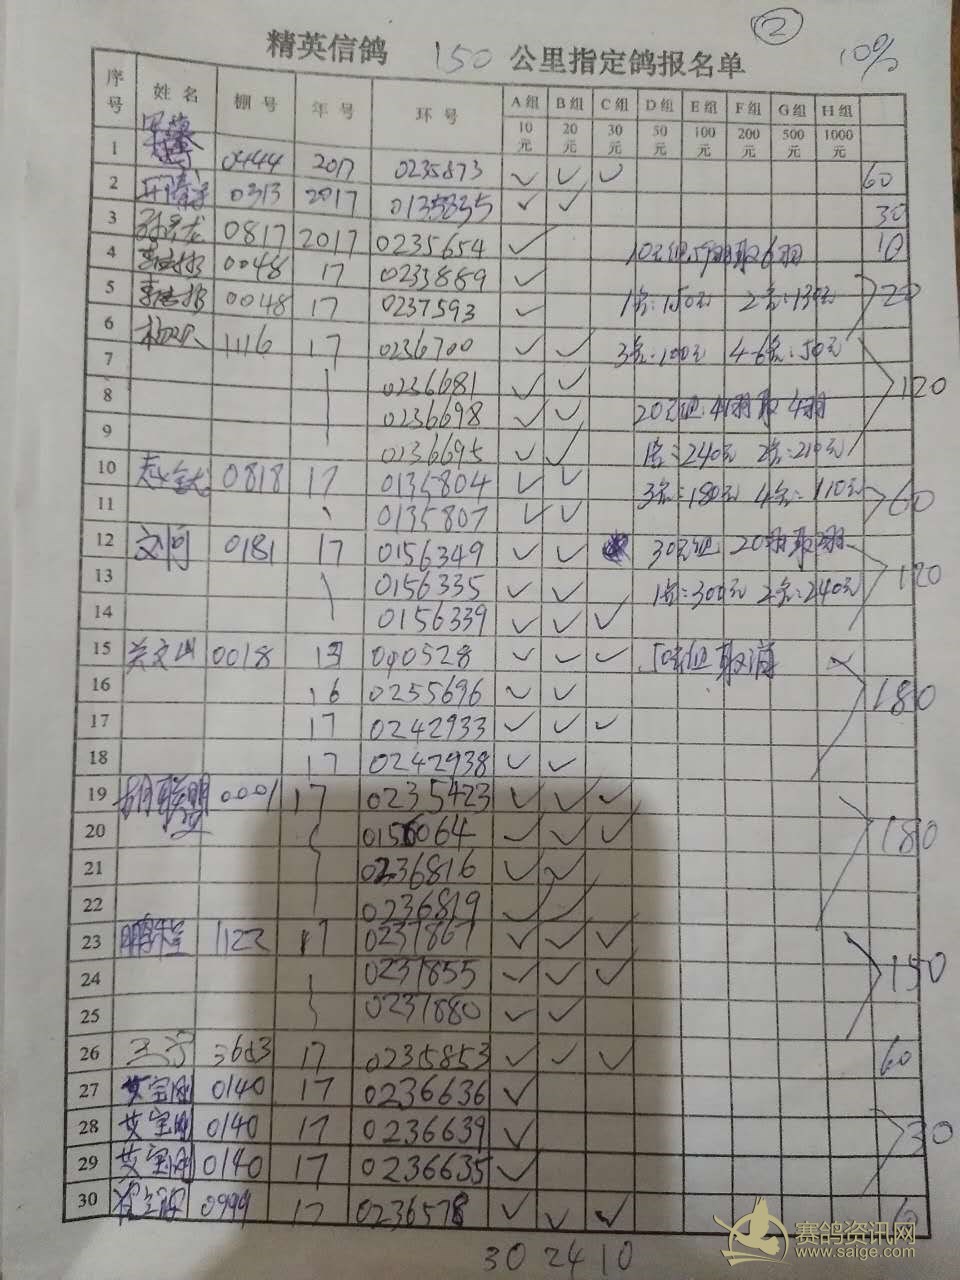 ②
精英信鸽 150 公里指定鸽报名单 10%
序号 姓名 棚号 年号 环号 A组 B组 C组 D组 E组 F组 G组 H组
10元 20元 30元 50元 100元 200元 500元 1000元
1 0444 2017 0235873 ✓ ✓ ✓ 60
2 0313 2017 0135835 ✓ ✓ 30
3 0817 2017 0235654 ✓ 10元组59羽取6羽 10
4 0048 17 0233889 ✓
5 0048 17 0237593 ✓ 1名:150元 2名:130元 20
6 1116 17 0236700 ✓ ✓ 3名:100元 4-6名:50元
7 0236681 ✓ ✓ 120
8 0236698 ✓ ✓ 20元组41羽取4羽
9 0136695 ✓ ✓ 1名:240元 2名:210元
10 0818 17 0135804 ✓ ✓ 3名:180元 4名:110元 60
11 0135807 ✓ ✓
12 0181 17 0156349 ✓ ✓ 30元组 20羽取2羽
13 0156335 ✓ ✓ 1名:300元 2名:240元 120
14 0156339 ✓ ✓ ✓
15 关文山 0018 ✓ ✓ ✓ 50元组取消
16 16 0255696 ✓ ✓ 180
17 17 0242933 ✓ ✓ ✓
18 17 0242938 ✓ ✓
19 0001 17 0235423 ✓ ✓ ✓
20 0156064 ✓ ✓ ✓ 180
21 0236816 ✓ ✓
22 0236819 ✓ ✓
23 鹏程 1122 17 0237867 ✓ ✓ ✓
24 0237855 ✓ ✓ ✓ 150
25 0237880 ✓ ✓
26 3653 17 0235853 ✓ ✓ ✓ 60
27 艾宝刚 0140 17 0236636 ✓
28 艾宝刚 0140 17 0236639 ✓ 30
29 艾宝刚 0140 17 0236635 ✓
30 0999 17 0236578 ✓ ✓ ✓
30 24 10
赛鸽资讯网
www.saige.com